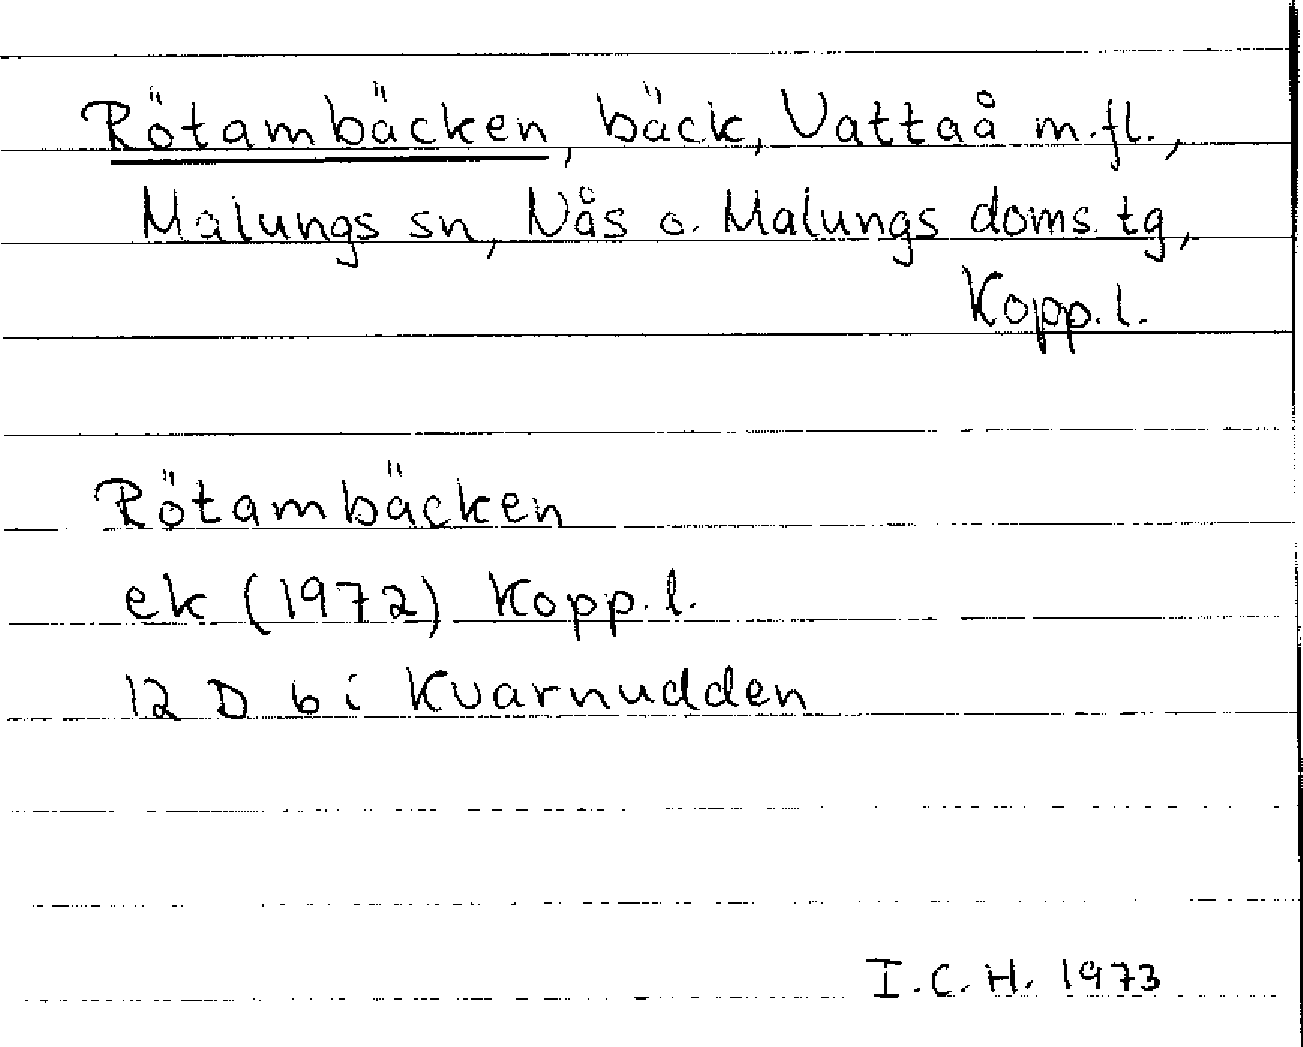 Rötambäcken, bäck, Vattaå m.fl.,
Malungs sn, Nås o. Malungs doms.tg,
Kopp.l.
Rötambäcken
ek (1972) Kopp.l.
12 D b i Kvarnudden
I.C.H. 1973